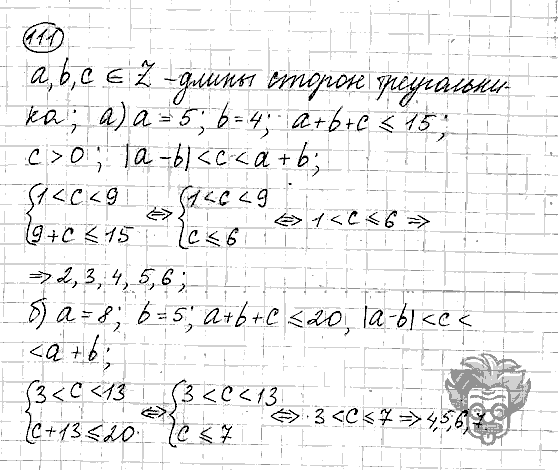 111
a, b, c ∈ Z - длины сторон треугольни-
ка; а) a = 5; b = 4; a + b + c ≤ 15;
c > 0; |a - b| < c < a + b;
{1 < c < 9 ⇔ {1 < c < 9 ⇔ 1 < c ≤ 6 ⇒
{9 + c ≤ 15 {c ≤ 6
⇒ 2, 3, 4, 5, 6;
б) a = 8; b = 5; a + b + c ≤ 20, |a - b| < c <
< a + b;
{3 < c < 13 ⇔ {3 < c < 13 ⇔ 3 < c ≤ 7 ⇒ 4, 5, 6, 7
{c + 13 ≤ 20 {c ≤ 7